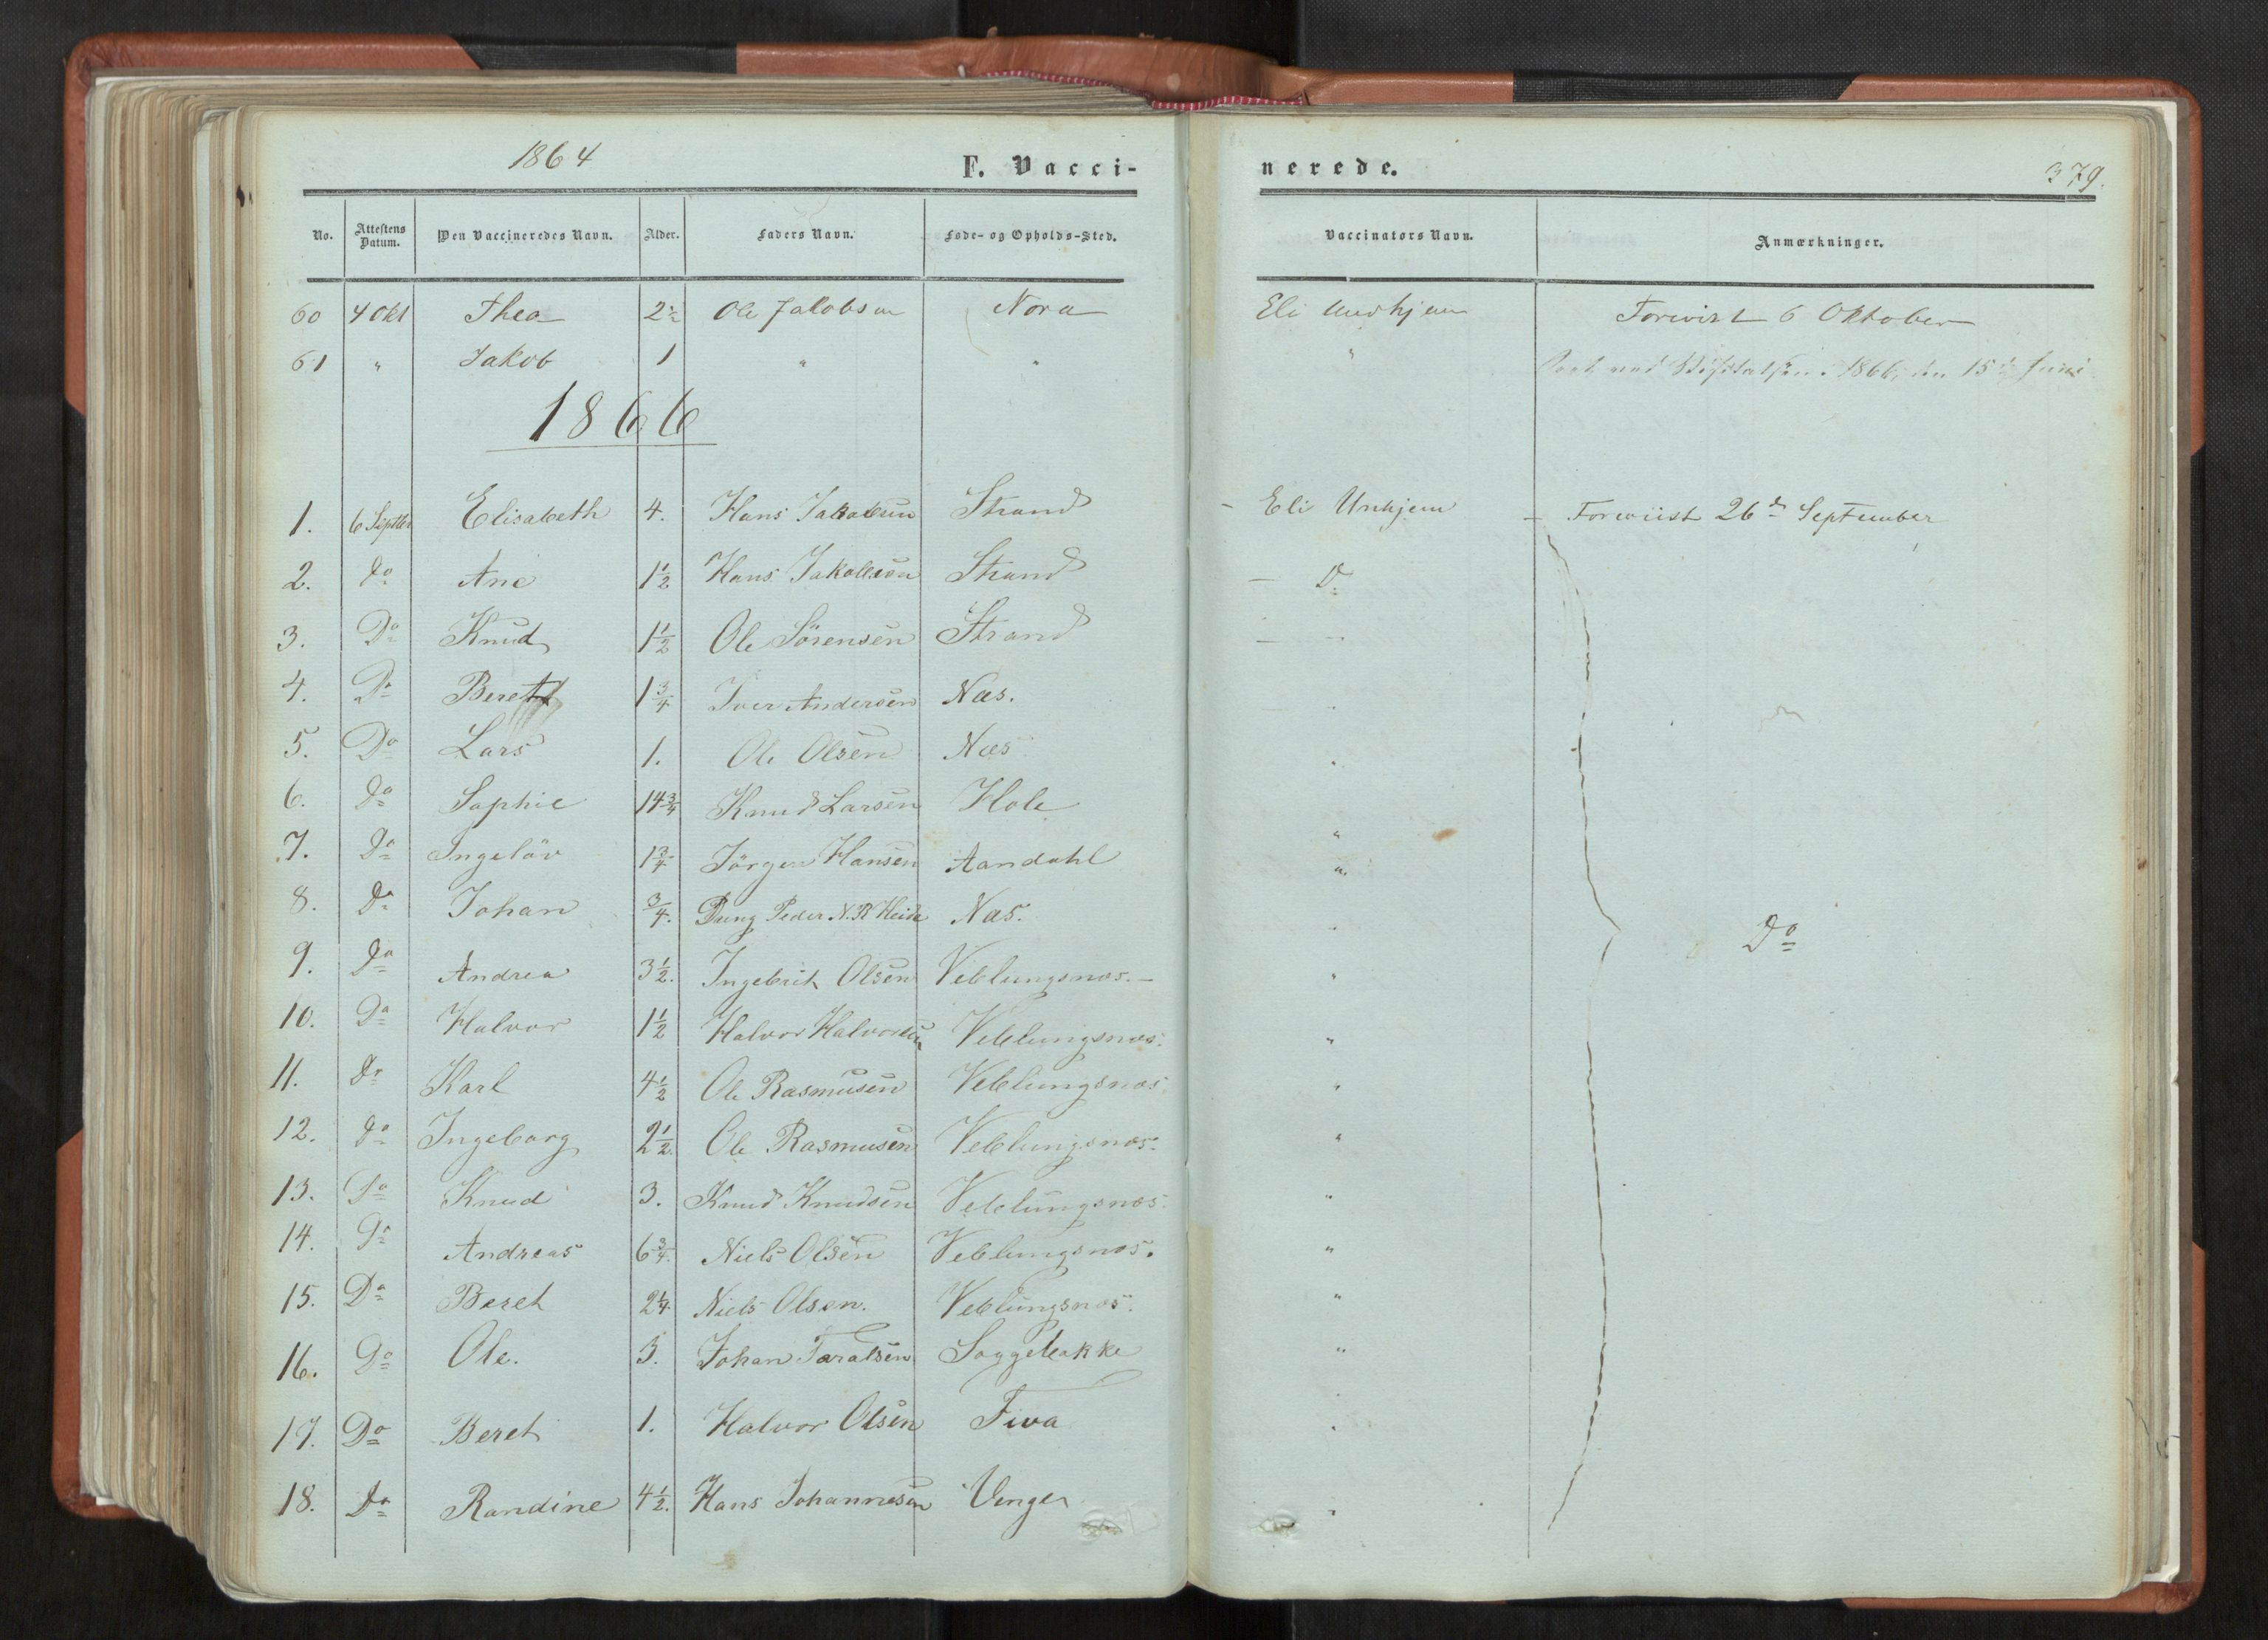 1864
F. Vacci-
nerede.
379.
No. Attestens Datum. Den Vaccineredes Navn. Alder. Faders Navn. Føde- og Opholds-Sted. Vaccinators Navn. Anmærkninger.
60 4 Okt Thea 2½ Ole Jakobsen Nora Eli Unhjem Forevist 6 Oktober
61 " Jakob 1 " " " 1866, den 15de Juni
1866
1. 6 Septbr Elisabeth 4. Hans Jakobsen Strand - Eli Unhjem - Foreviist 26de September
2. Do Ane 1½ Hans Jakobsen Strand - Do
3. Do Knud 1½ Ole Sörensen Strand
4. Do Beret 1¾ Iver Andersen Næs.
5. Do Lars 1. Ole Olsen Næs "
6. Do Sophie 14¾ Knud Larsen Hole "
7. Do Ingeløv 1¾ Jörgen Hansen Aandahl "
8. Do Johan ¾. Peder N. R. Heide Næs. " Do
9. Do Andrea 3½. Ingebrit Olsen Veblungsnæs. - "
10. Do Halvor 1½ Halvor Halvorsen Veblungsnæs. "
11. Do Karl 4½ Ole Rasmusen Veblungsnæs "
12. Do Ingeborg 2½. Ole Rasmusen Veblungsnæs. "
13. Do Knud 3. Knud Knudsen Veblungsnæs. "
14. Do Andreas 6¾. Niels Olsen Veblungsnæs. "
15. Do Beret 2¼. Niels Olsen. Veblungsnæs. "
16. Do Ole. 3. Johan Taralsen Soggebakke "
17. Do Beret 1. Halvor Olsen Fiva "
18. Do Randine 4½. Hans Johannesen Venge "